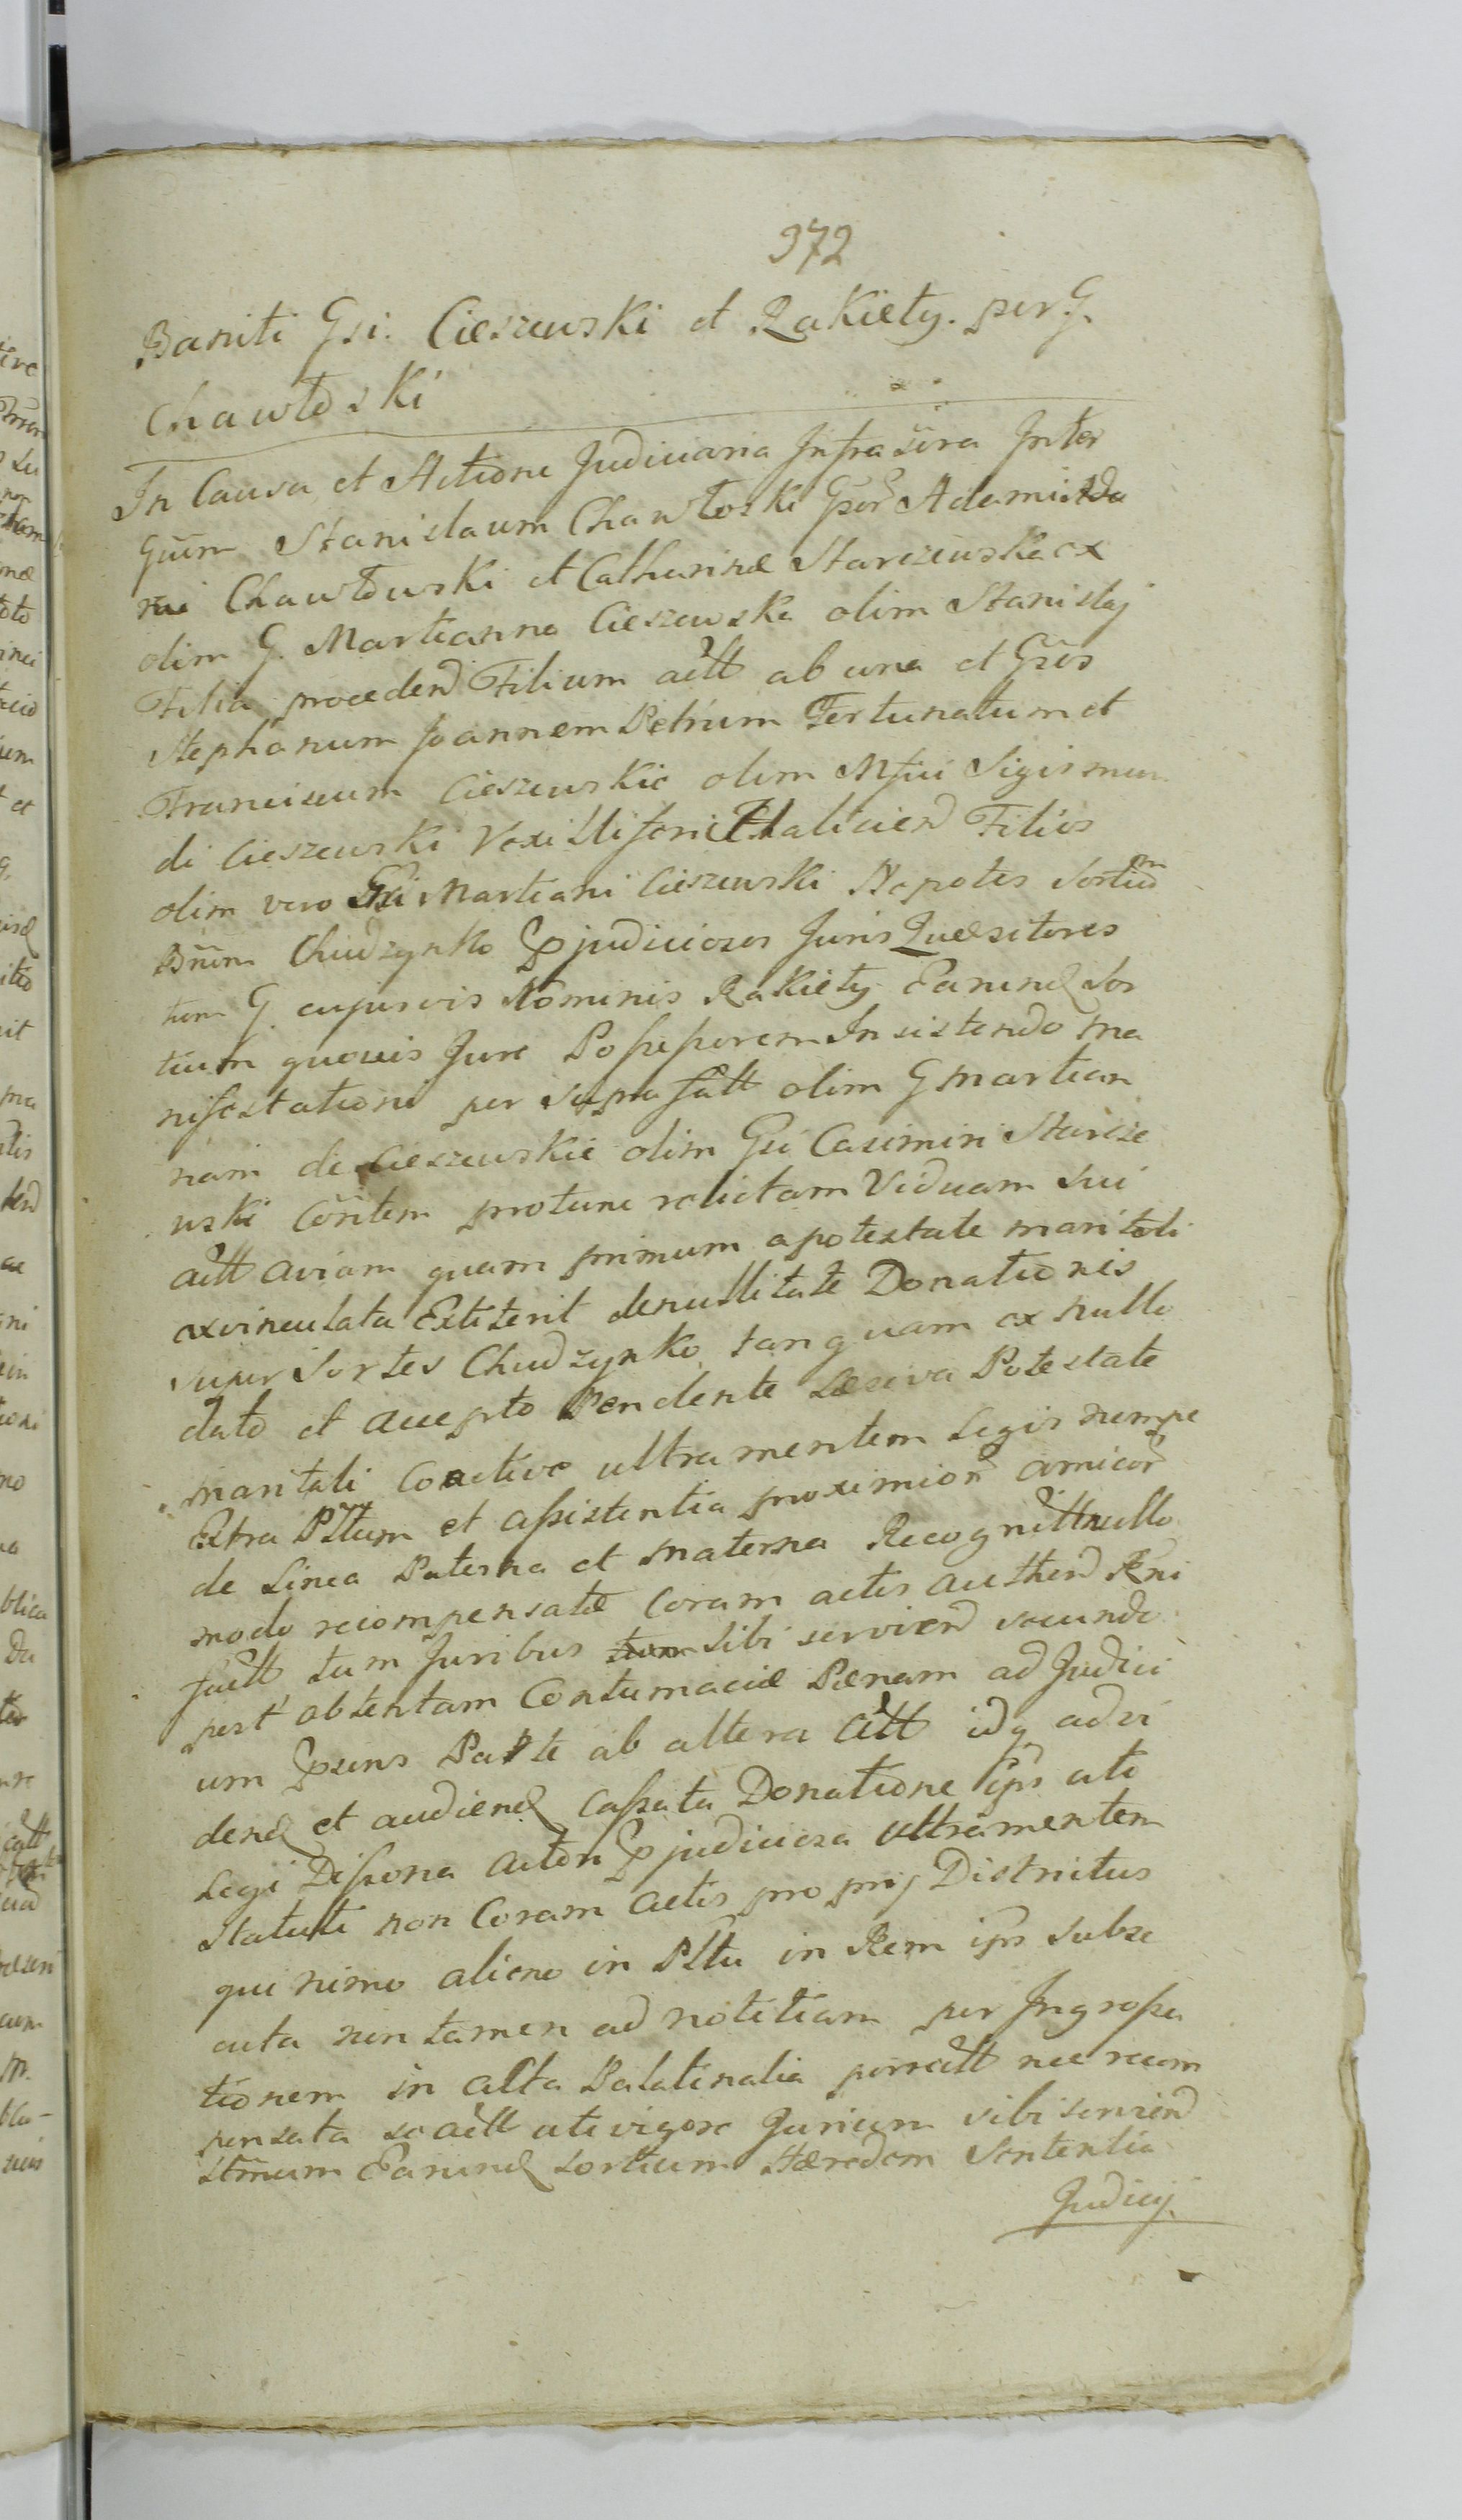 972
Baniti Gsi. Cieszewski et Rakiety. per G.
Chawłoski
In Causa et Actione Judiciaria Infra scra Inter
Gsum Stanislaum Chawłoski Gsor Adami
Chawłowski et Catharinæ Starczewska ex
olim G. Martianna Cieszewska olim Stanislaj
Filia procedend Filium actt ab una et Gsos
Stephanum Joannem Petrum Fortunatum et
Franciscum Cieszewskie olim Mfici Sigismun
di Cieszewski Vexilliferi Halicien Filios
olim vero Gsi Martiani Cieszewski Nepotes Sortium
Bnrm Chudzynko Pjudiciosos Juris Quæsitores
tum G. cujusvis Nominis Rakiety Earund Sor
tium quovis Jure Possessorem Insistendo ma
nifestationi per supra fatt olim G Martian
nam de Cieszewskie olim Gsi Casimiri Starcze
wski Contem protunc relictam Viduam Sui
actt aviam quam primum a potestate maritali
exvinculata Extiterit de nullitate Donationis
super Sortes Chudzynko tanquam ex nullo
dato et accepto Pendente Læsiva Potestate
maritali Coactive ultra mentem Legis nempe
Extra Pltum et assistentia proximior amicor
de Linea Paterna et Materna Recognitt nullo
modo recompensatæ Coram actis authen Rni
factt tum Juribus sibi servien secundo
post obtentam Contumaciæ Pænam ad Judici
um Psens Parte ab altera Citt idq ad vi
dend et audiend Cassata Donatione ips uti
Legi Dissona acton Pjudiciosa ultra mentem
Statuti non Coram actis proprij Districtus
qui nimo alieno in Pltu in Rem ips subse
cuta nec tamen ad notitiam per Ingrossa
tionem in acta Palatinalia porrectt nec recom
pensata se actt uti vigore Jurium sibi servien
Ltmum Earund Sortium Hæredem Sententia
Judicij.